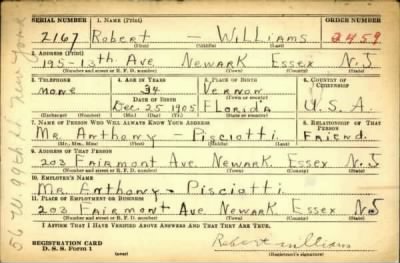 SERIAL NUMBER 1. NAME (Print) ORDER NUMBER
2167 Robert - Williams 2459
(First) (Middle) (Last)
2. ADDRESS (Print)
195-13th Ave Newark Essex N.J
(Number and street or R. F. D. number) (Town) (County) (State)
3. TELEPHONE 4. AGE IN YEARS 5. PLACE OF BIRTH 6. COUNTRY OF CITIZENSHIP
none 34 Vernon
DATE OF BIRTH (Town or county)
Dec. 25 1905 Florida U.S.A.
(Exchange) (Number) (Mo.) (Day) (Yr.) (State or country)
7. NAME OF PERSON WHO WILL ALWAYS KNOW YOUR ADDRESS 8. RELATIONSHIP OF THAT PERSON
Mr. Anthony - Pisciotti Friend.
(Mr., Mrs., Miss) (First) (Middle) (Last)
9. ADDRESS OF THAT PERSON
203 Fairmont Ave Newark. Essex N.J
(Number and street or R. F. D. number) (Town) (County) (State)
10. EMPLOYER'S NAME
Mr. Anthony - Pisciotti
11. PLACE OF EMPLOYMENT OR BUSINESS
203 Fairmont Ave Newark Essex NJ
(Number and street or R. F. D. number) (Town) (County) (State)
I AFFIRM THAT I HAVE VERIFIED ABOVE ANSWERS AND THAT THEY ARE TRUE.
REGISTRATION CARD
D. S. S. Form 1 (over) Robert williams
(Registrant's signature)
56 W. 99th St New York